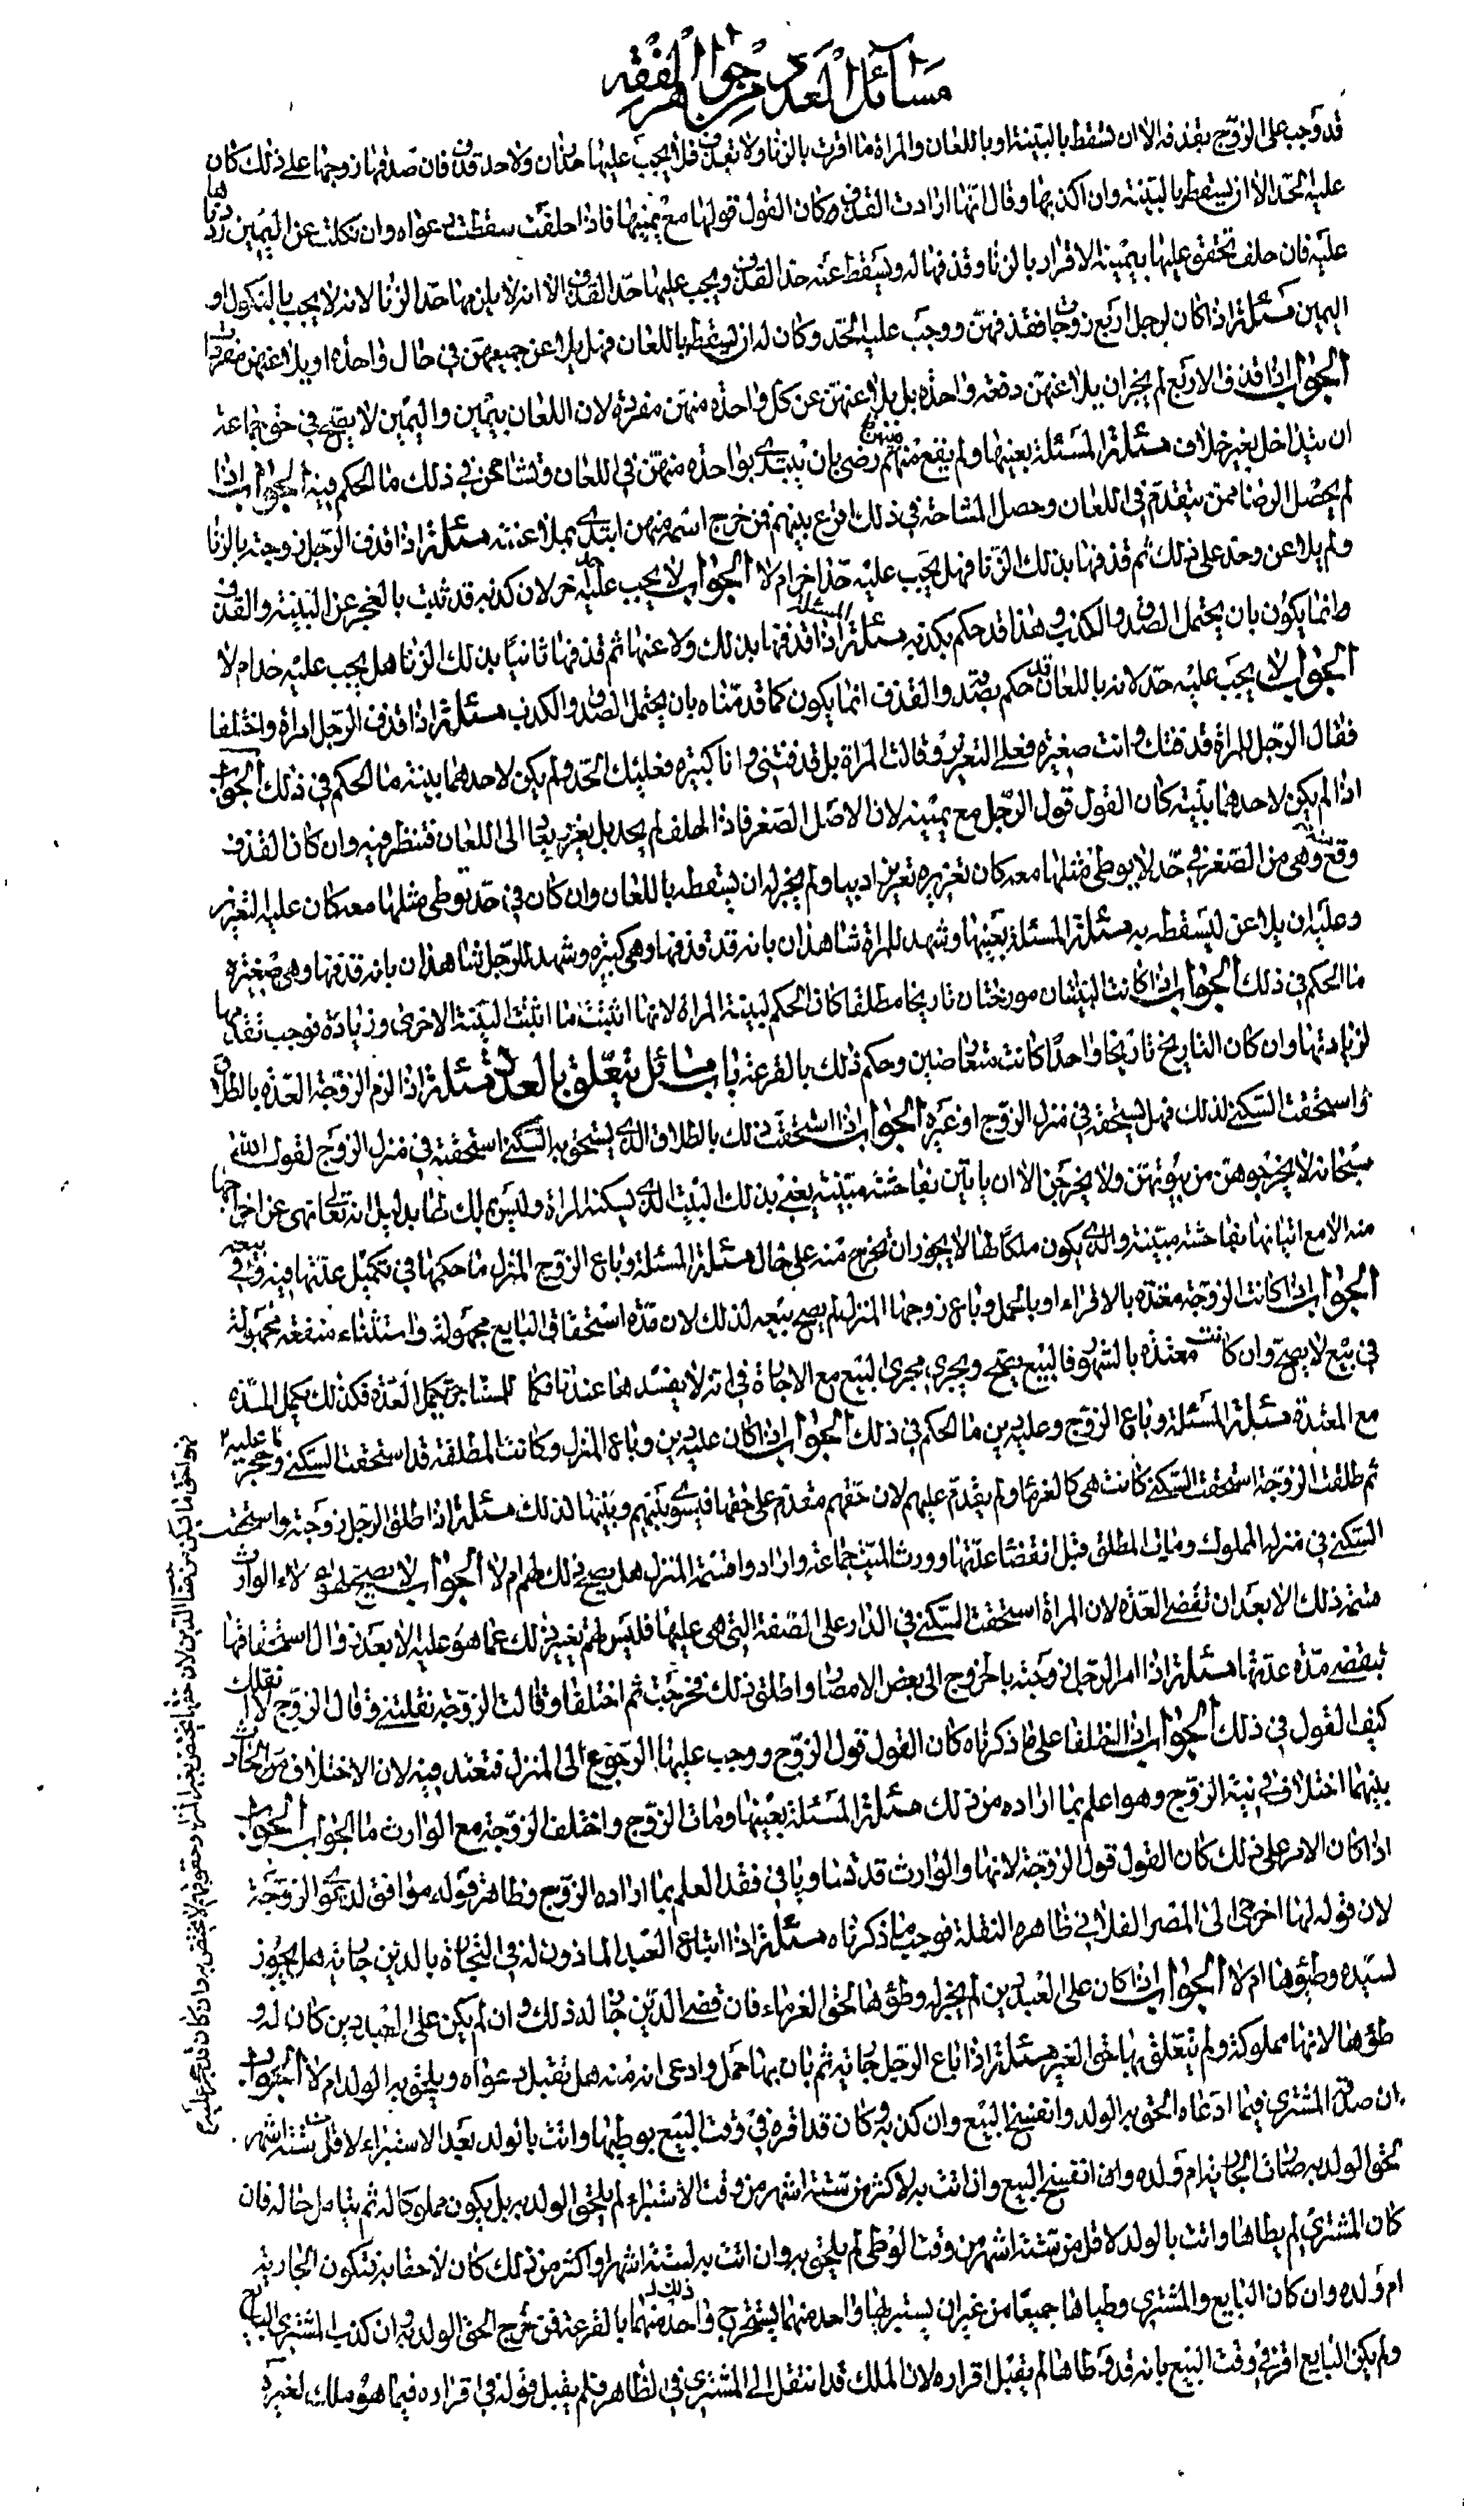 مسائل العدة من جواهر الفقه
قد وجب على الزوج بقذفه الا ان تسقط بالبينة او باللعان والمراة ما اقرت بالزنا ولا بقذف فلا يجب عليها حد زان ولا حد قذف فان صدقها زوجها على ذلك كان
عليه الحد الا ان يسقطه بالبينة وان اكذبها وقال انها ارادت القذف كان القول قولها مع يمينها فاذا حلفت سقطت دعواه وان نكلت عن اليمين ردناها
عليه فان حلف تحقق عليها بيمينه الاقرار بالزنا وقذفها له ويسقط عنه حد القذف ويجب عليها حد القذف الا انه لا يلزمها حد الزنا لانه لا يجب بالنكول او
اليمين مسئلة اذا كان لرجل اربع زوجات فقذفهن ووجب عليه الحد وكان له ان يسقطه باللعان فهل يلاعن جميعهن في حال واحدة او يلاعنهن مفردات
الجواب اذا قذف الاربع لم يجز ان يلاعنهن دفعة واحدة بل يلاعنهن عن كل واحدة منهن مفردة لان اللعان يمين واليمين لا يصح في حق جماعة
ان يتداخل بغير خلاف مسئلة المسئلة بعينها ولم يقع منهن رضى بان يبتدى بواحدة منهن في اللعان وتشاححن في ذلك ما الحكم فيه الجواب اذا
لم يحصل الرضا ممن يتقدم في اللعان وحصل المشاحة في ذلك اقرع بينهم فمن خرج اسمه منهن ابتدى بملاعنته مسئلة اذا قذف الرجل زوجته بالزنا
ولم يلاعن وحد على ذلك ثم قذفها بذلك الزنا فهل يجب عليه حد اخر ام لا الجواب لا يجب عليه حد اخر لان كذبه قد ثبت بالعجز عن البينة والقذف
وانما يكون بان يحتمل الصدق والكذب وهذا قد حكم بكذبه مسئلة المسئلة اذا قذفها بذلك ولاعنها ثم قذفها ثانيا بذلك الزنا هل يجب عليه حد ام لا
الجواب لا يجب عليه حد لانه باللعان قد حكم بصدقه والقذف انما يكون كما قدمناه بان يحتمل الصدق والكذب مسئلة اذا قذف الرجل امراة واختلفا
فقال الرجل للمراة قذفتك وانت صغيرة فعلي التعزير وقالت المراة بل قذفتني وانا كبيرة فعليك الحد ولم يكن لاحدهما بينة ما الحكم في ذلك الجواب
اذا لم يكن لاحدهما بينة كان القول قول الرجل مع يمينه لان الاصل الصغر فاذا حلف لم يحد بل يعزر الى اللعان فننظر فيه وان كان القذف
وقع وهي من الصغر في حد لا يوطى مثلها معه كان تعزيره تعزير ادب ولم يجز له ان يسقطه باللعان وان كان في حد توطى مثلها معه كان عليه التعزير
وعليه ان يلاعن ليسقطه به مسئلة المسئلة بعينها وشهد للمراة شاهدان بانه قد قذفها وهي كبيرة وشهد للرجل شاهدان بانه قذفها وهي صغيرة
ما الحكم في ذلك الجواب اذا كانت البينتان مورختان تاريخا مطلقا كان الحكم لبينة المراة لانها اثبتت ما اثبتت البينة الاخرى وزيادة فوجب تقديمها
لزيادتها وان كان التاريخ تاريخا واحدا كانت متعارضين وحكم ذلك بالقرعة باب مسائل تتعلق بالعدة مسئلة اذا الزم الزوجة العدة بالطلاق
واستحقت السكنى لذلك فهل تستحقه في منزل الزوج او غيره الجواب اذا استحقت ذلك بالطلاق الذي يستحق به السكنى استحقته في منزل الزوج لقول الله
سبحانه لا تخرجوهن من بيوتهن ولا يخرجن الا ان ياتين بفاحشة مبينة يعني بذلك البيت الذي يسكنه المراة وليس بملك لها بدليل انه تعالى نهى عن اخراجها
منه الا مع اتيانها بفاحشة مبينة والذي يكون ملكا لها لا يجوز ان تخرج منه على حال مسئلة المسئلة وباع الزوج المنزل ما حكمها في تكميل عدتها فيه وفي بيعه
الجواب اذا كانت الزوجة معتدة بالاقراء او بالحمل وباع زوجها المنزل لم يصح بيعه لذلك لان مدة استحقاق البايع مجهولة واستثناء منفعة مجهولة
في بيع لا يصح وان كانت معتدة بالشهور فالبيع يصح ويجرى مجرى البيع مع الاجارة في انه لا يفسد هما عندنا فكما للمستاجر تكمل العدة فكذلك يكمل المدة
مع المعتدة مسئلة المسئلة وباع الزوج وعليه دين ما الحكم في ذلك الجواب اذا كان عليه دين وباع المنزل وكانت المطلقة قد استحقت السكنى وحجر عليه
ثم طلقت الزوجة استحقت السكنى كانت هي كالغرماء ولم يقدم عليهم لان حقهم متقدم على حقها فيسوى بينهم وبينها لذلك مسئلة اذا طلق الرجل زوجته واستحقت
السكنى في منزله المملوك ومات المطلق قبل انقضاء عدتها وورث الميت جماعة وارادوا قسمة المنزل هل يصح ذلك لهم ام لا الجواب لا يصح لهؤلاء الوارث
قسمة ذلك الا بعد ان تقضى العدة لان المراة استحقت السكنى في الدار على الصفة التي هي عليها فليس لهم تغيير ذلك عما هو عليه الا بعد زوال استحقاقها
بتقضى مدة عدتها مسئلة اذا امر الرجل زوجته بالخروج الى بعض الامصار واطلق ذلك فخرجت ثم اختلفا وقالت الزوجة نقلتني وقال الزوج لا انقلك
كيف القول في ذلك الجواب اذا اختلفا على ما ذكرناه كان القول قول الزوج ووجب عليها الرجوع الى المنزل فتعتد فيه لان الاختلاف
بينهما اختلاف في نية الزوج وهو اعلم بما اراده من ذلك مسئلة المسئلة بعينها ومات الزوج واختلف الزوجة مع الوارث ما الجواب الجواب
اذا كان الامر على ذلك كان القول قول الزوجة لانها والوارث قد تساويا في فقد العلم بما اراده الزوج وظاهر قوله موافق لدعوى الزوجة
لان قوله لها اخرجى الى المصر الفلاني ظاهره النقلة فوجب ما ذكرناه مسئلة اذا ابتاع العبد الماذون له في التجارة بالدين جارية هل يجوز
لسيده وطؤها ام لا الجواب اذا كان على العبد دين لم يجز له وطؤها لحق الغرماء فان قضى الدين جاز له ذلك وان لم يكن على العبد دين كان له و
طؤها لانها مملوكته ولم يتعلق بها حق الغير مسئلة اذا باع الرجل جارية ثم بان بها حمل وادعى انه منه هل تقبل دعواه ويلحق به الولد ام لا الجواب
ان صدق المشتري فيما ادعاه الحق به الولد وانفسخ البيع وان كذبه وكان قد اقر في وقت البيع بوطيها واتت بالولد بعد الاستبراء لاقل من ستة اشهر
لحق الولد به وصارت الجارية ام ولده وانفسخ البيع وان اتت به لاكثر من ستة اشهر من وقت الاستبراء لم يلحق الولد به بل يكون مملوكا له ثم يتامل حاله فان
كان المشتري لم يطاها واتت بالولد لاقل من ستة اشهر من وقت الوطى لم يلحق به وان اتت به لستة اشهر او اكثر من ذلك كان لاحقا به وتكون الجارية
ام ولده وان كان البايع والمشتري وطياها جميعا من غير ان يستبريها واحد منهما يستخرج واحد منهما بالقرعة فمن خرج الحق الولد به وان كذب المشتري البايع
ولم يكن البايع اقر في وقت البيع بانه قد وطاها لم يقبل اقراره لان الملك قد انتقل الى المشتري في الظاهر فلم يقبل قوله في اقراره فيما هو ملك لغيره